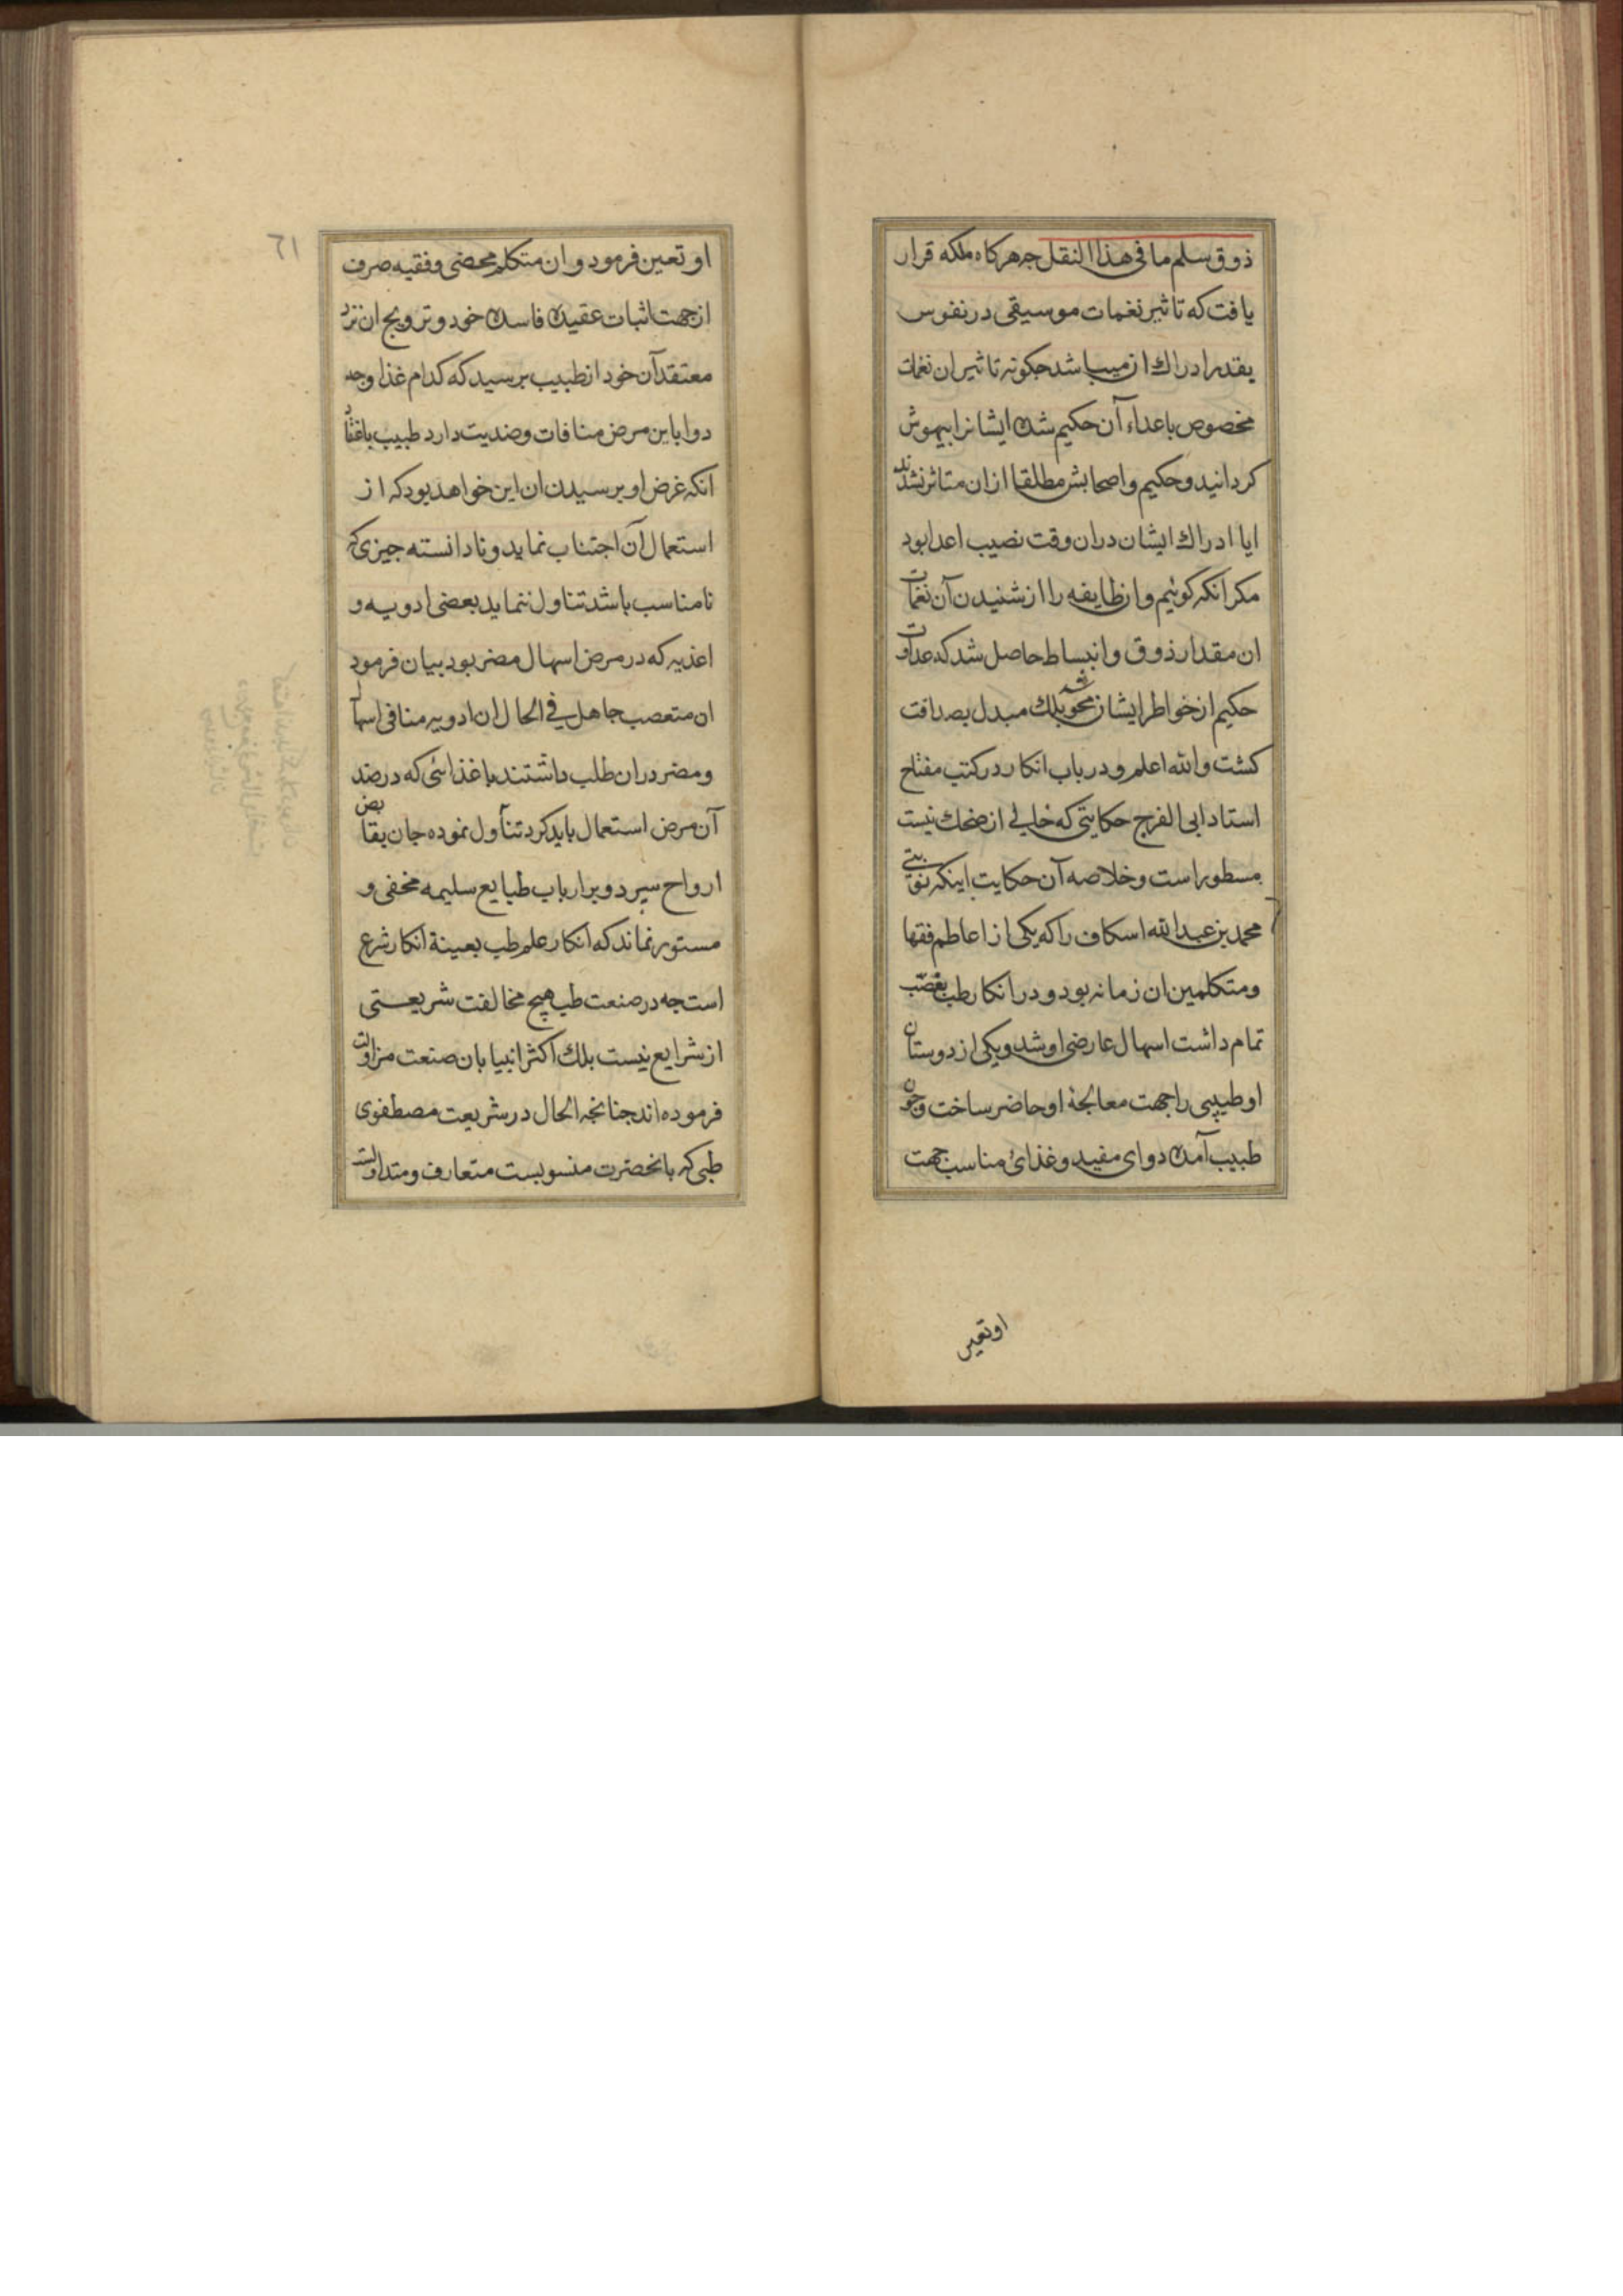 ذوق سلم ما فی هذا النقل جه هرکاه ملکه قرار
یافت که تاثیر نغمات موسیقی در نفوس
بقدر ادراك ازمیباشد جکونه تاثیر ان نغمات
مخصوص باعداء آن حکیم شده ایشانرا بیهوش
کردانید و حکیم و اصحابش مطلقا ازان متاثر نشدند
ایا ادراك ایشان دران وقت نصیب اعدا بود
مکر انکه کوئیم و ان طایفه را از شنیدن آن نغمات
ان مقدار ذوق و انبساط حاصل شد که عداوت
حکیم از خواطر ایشان محو شد بلك مبدل بصداقت
کشت والله اعلم و در باب انکار در کتب مفتاح
استاد ابی الفرج حکایتی که خالی از ضحك نیست
مسطور است و خلاصه آن حکایت اینکه نوبتی
محمد بن عبدالله اسکاف را که یکی از اعاظم فقها
و متکلمین ان زمانه بود و در انکار طب تعصّب
تمام داشت اسهال عارضی او شد و یکی از دوستان
او طیبیی را جهت معالجهٔ او حاضر ساخت و چون
طبیب آمده دوای مفید و غذای مناسب جهت
او تعین
٦١
او تعین فرمود و ان متکلم محضی و فقیه صرف
از جهت اثبات عقیده فاسده خود و ترویج ان نزد
معتقدآن خود از طبیب برسید که کدام غذا و جه
دوا باین مرض منافات و ضدیت دارد طبیب باعتقاد
انکه غرض او برسیدن ان این خواهد بود که از
استعمال آن اجتناب نماید و نادانسته جیزی که
نامناسب باشد تناول ننماید بعضی ادویه و
اغذیه که در مرض اسهال مضر بود بیان فرمود
ان متعصب جاهل فی الحال ان ادویه منافی اسهال
و مضر دران طلب داشتند با غذائی که در ضد
آن مرض استعمال باید کرد تناول نموده جان بقابض
ارواح سپرد و بر ارباب طبایع سلیمه مخفی و
مستور نماند که انکار علم طب بعینة انکار شرع
است جه در صنعت طب هیچ مخالفت شریعتی
از شرایع نیست بلك اکثر انبیا بان صنعت مزاولت
فرموده اند جنانجه الحال در شریعت مصطفوی
طبی که بانحضرت منسوبست متعارف و متداولست